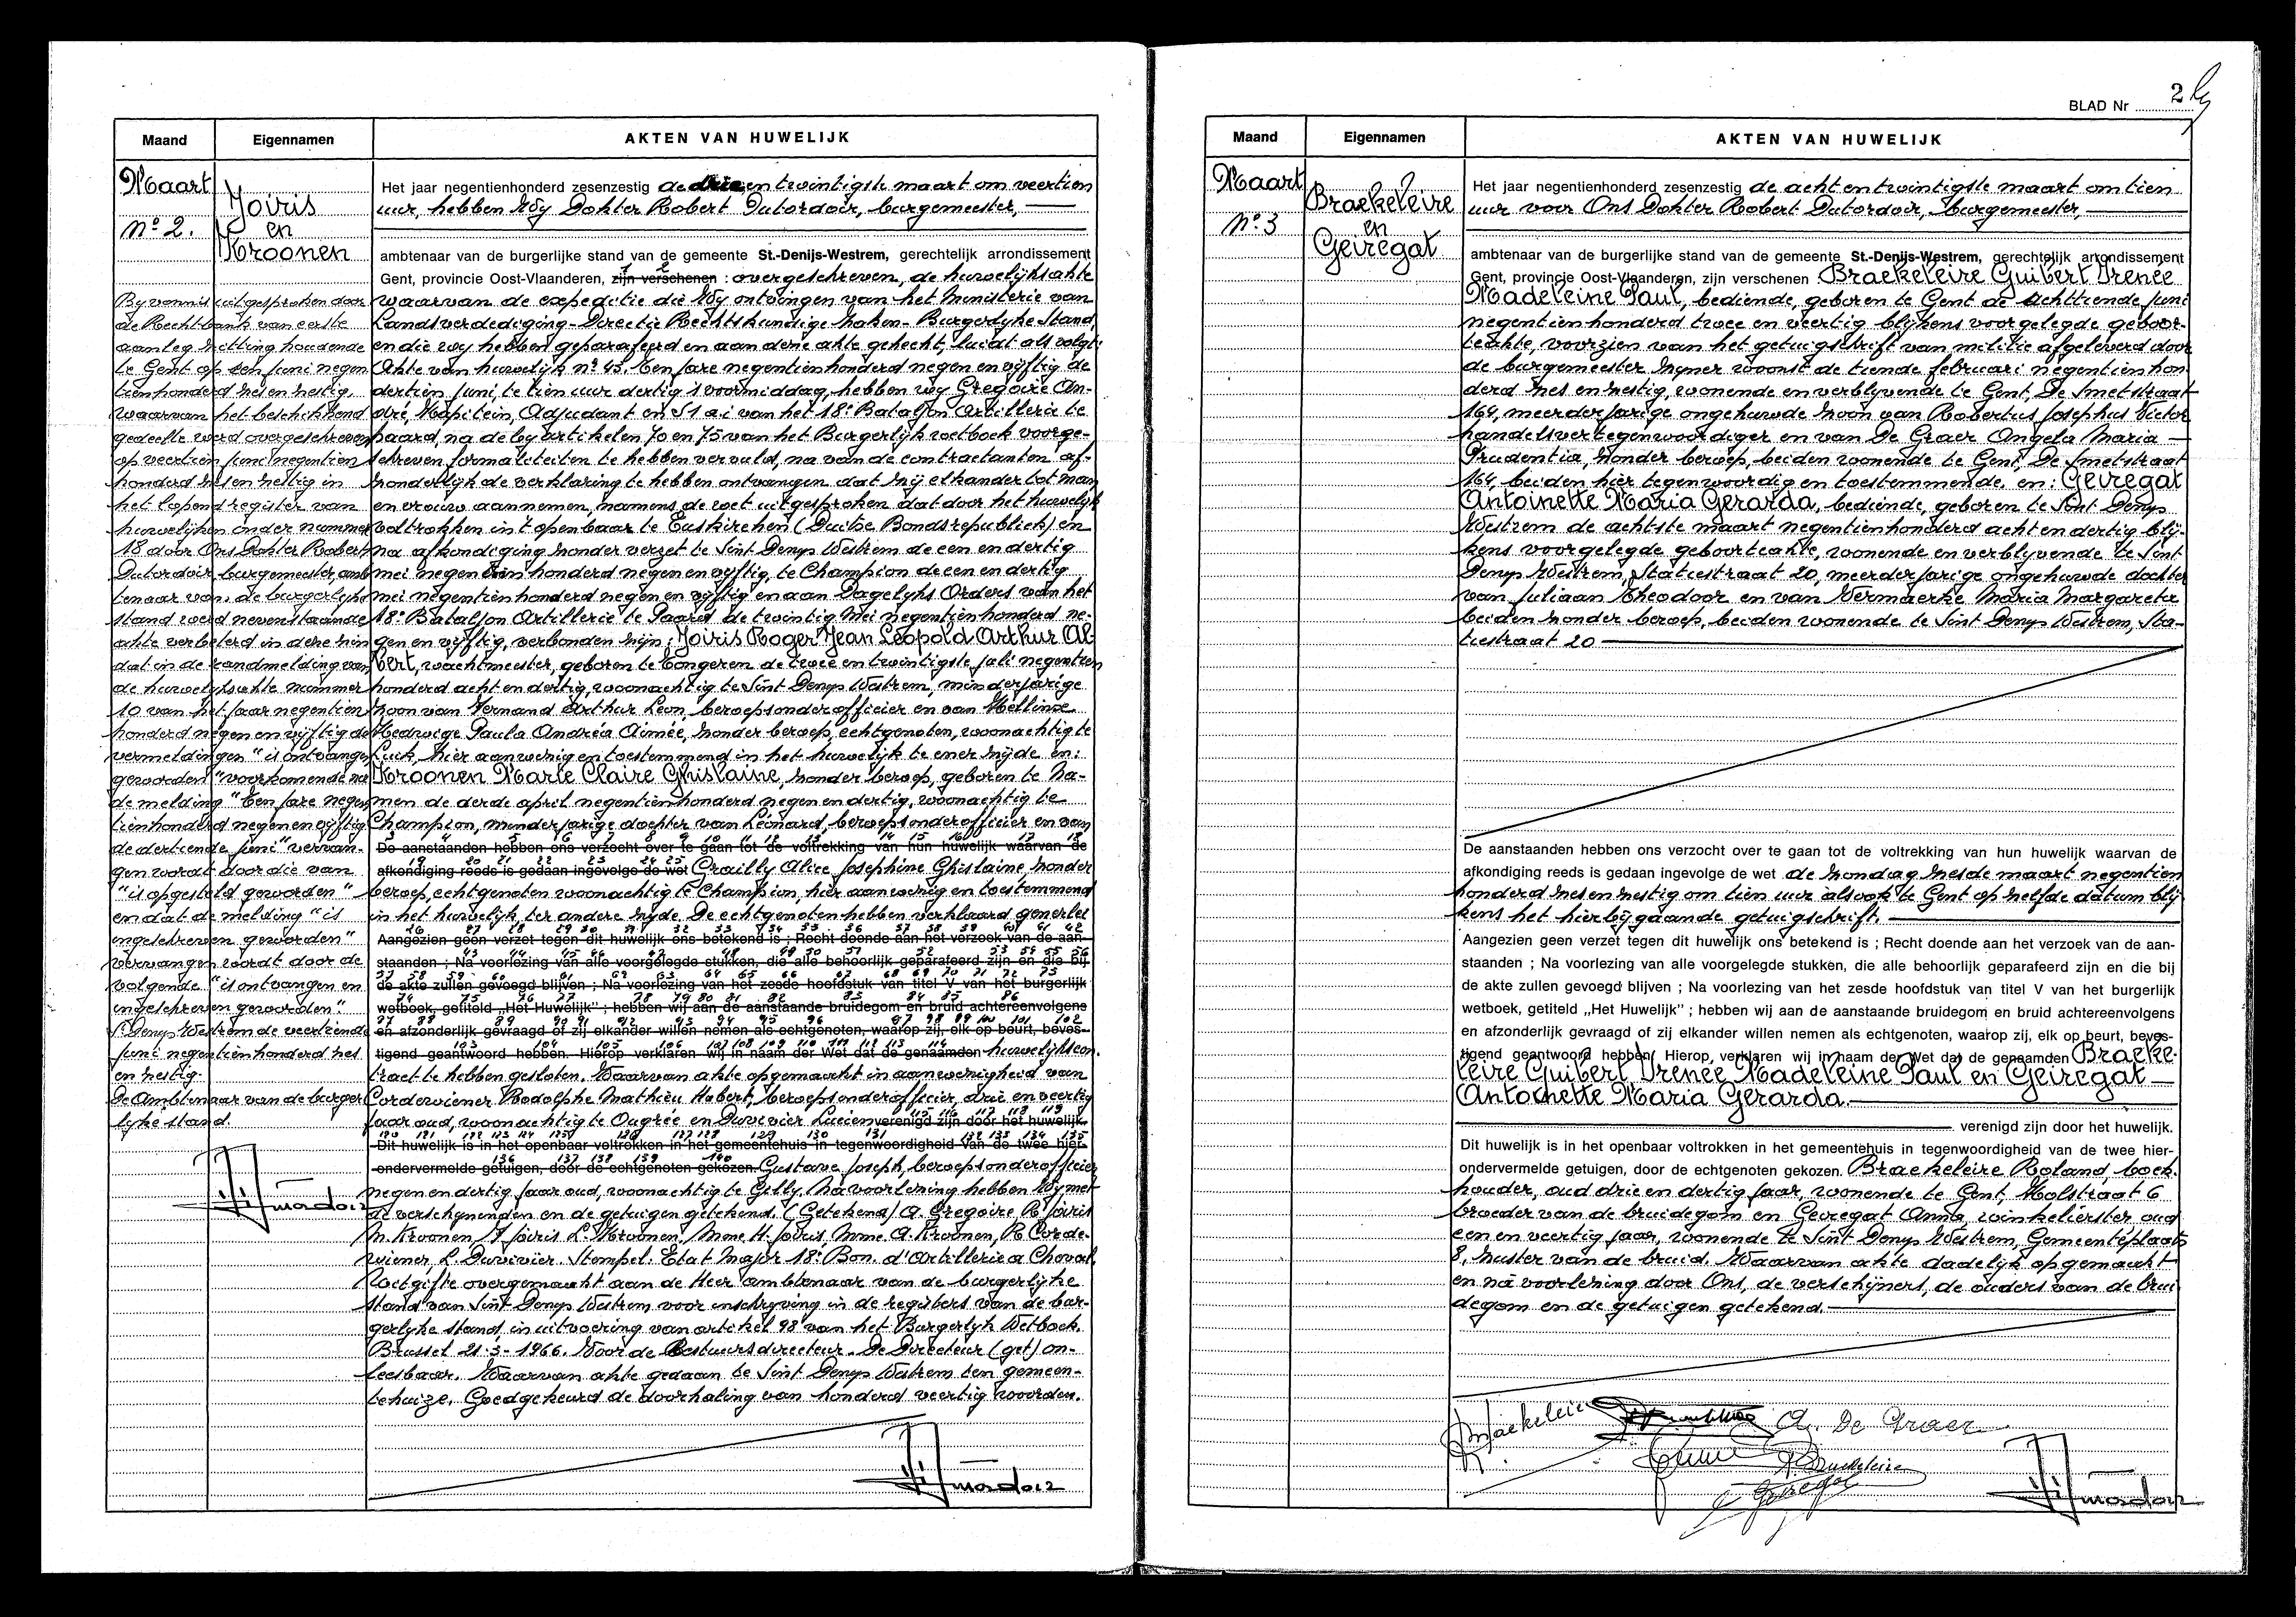 Maand
Eigennamen
AKTEN VAN HUWELIJK
Maart
Nº 2.
Joiris
en
Kroonen
By vonnis uitgesproken door
de Rechtbank van eerste
aanleg zitting houdende
te Gent op een juni negen
tienhonderd zes en zestig
waarvan het beschikkend
gedeelte werd overgeschreven
op veertien juni negentien
honderd zes en zestig in
het lopend register van
huwelijken onder nummer
18 door Ons Dokter Robert
Dutordoir burgemeester, amb
tenaar van de burgerlyke
stand werd nevenstaande
akte verbeterd in deze zin
dat in de randmelding van
de huwelijksakte nummer
10 van het jaar negentien
honderd negen en vyftig de
vermeldingen "is ontvangen
geworden" voorkomende na
de melding "Een jare negen
tienhonderd negen en vyftig
de dertiende juni" vervan-
gen wordt door die van
"is opgesteld geworden"
en dat de melding "is
ingeschreven geworden"
vervangen wordt door de
volgende "is ontvangen en
ingeschreven geworden".
St Denys Westrem de veertiende
juni negentienhonderd zes
en zestig.
De Ambtenaar van de burger
lyke stand.
Het jaar negentienhonderd zesenzestig de drie en twintigste maart om veertien
uur, hebben Wy Dokter Robert Dutordoir, burgemeester,
ambtenaar van de burgerlijke stand van de gemeente St.-Denijs-Westrem, gerechtelijk arrondissement
Gent, provincie Oost-Vlaanderen, zijn verschenen : overgeschreven, de huwelijksakte
waarvan de expeditie die Wy ontvingen van het Ministerie van
Landsverdediging - Directie Rechtskundige Zaken - Burgerlyke Stand,
en die wy hebben geparafeerd en aan deze akte gehecht, luidt als volgt:
Akte van huwelijk nº 45. Een jare negentienhonderd negen en vyftig de
dertien juni, te tien uur dertig 's voormiddag, hebben wy Gregoire An-
dré, Kapitein, Adjudant en S1 a.i van het 18e Bataljon Artillerie te
paard, na de by artikelen 70 en 75 van het Burgerlyk wetboek voorge-
schreven formaliteiten te hebben vervuld, na van de contractanten af-
zonderlyk de verklaring te hebben ontvangen dat zij elkander tot man
en vrouw aannemen, namens de wet uitgesproken dat door het huwelyk
voltrokken in 't openbaar te Euskirchen (Duitse Bondsrepubliek) en
na afkondiging zonder verzet te Sint Denys Westrem de een en dertig
mei negentien honderd negen en vyftig, te Champion de een en dertig
mei negentienhonderd negen en vyftig en aan Dagelyks Orders van het
18e Bataljon Artillerie te Paard de twintig Mei negentienhonderd ne-
gen en vyftig, verbonden zijn : Joiris Roger Jean Léopold Arthur Al
bert, wachtmeester, geboren te Tongeren de twee en twintigste juli negentien
honderd acht en dertig, woonachtig te Sint Denys Westrem, minderjarige
zoon van Fernand Arthur Leon, beroepsonderofficier en van Hellinx
Hedwige Paula Andréa Aimée, zonder beroep, echtgenoten, woonachtig te
Luik, hier aanwezig en toestemmend in het huwelijk te ener zijde en:
Kroonen Marie Claire Ghislaine, zonder beroep, geboren te Na-
men de derde april negentienhonderd negen en dertig, woonachtig te
Champion, minderjarige dochter van Léonard, beroepsonderofficier en van
De aanstaanden hebben ons verzocht over te gaan tot de voltrekking van hun huwelijk waarvan de
afkondiging reeds is gedaan ingevolge de wet Crailly Alice Josephine Ghislaine zonder
beroep, echtgenoten woonachtig te Champion, hier aanwezig en toestemmend
in het huwelijk, ter andere zyde. De echtgenoten hebben verklaard generlei
Aangezien geen verzet tegen dit huwelijk ons betekend is ; Recht doende aan het verzoek van de aan-
staanden ; Na voorlezing van alle voorgelegde stukken, die alle behoorlijk geparafeerd zijn en die bij
de akte zullen gevoegd blijven ; Na voorlezing van het zesde hoofdstuk van titel V van het burgerlijk
wetboek, getiteld „Het Huwelijk" ; hebben wij aan de aanstaande bruidegom en bruid achtereenvolgens
en afzonderlijk gevraagd of zij elkander willen nemen als echtgenoten, waarop zij, elk op beurt, beves-
tigend geantwoord hebben. Hierop verklaren wij in naam der Wet dat de genaamden huwelijkscon.
tract te hebben gesloten. Waarvan akte opgemaakt in aanwezigheid van
Cordewiener Rodolphe Mathieu Hubert, beroepsonderofficier, drie en veertig
jaar oud, woonachtig te Ougrée en Duvivier Lucien verenigd zijn door het huwelijk.
Dit huwelijk is in het openbaar voltrokken in het gemeentehuis in tegenwoordigheid van de twee hier-
ondervermelde getuigen, door de echtgenoten gekozen. Gustave Joseph, beroepsonderofficier
negen en dertig jaar oud, woonachtig te Gilly. Na voorlezing hebben Wy met
de verschynenden en de getuigen getekend. (Getekend) A. Gregoire R. Joiris
M. Kroonen F Joiris L. Kroonen, Mme H. Joiris, Mme A. Kroonen, R Corde-
wiener, L. Duvivier. Stempel: Etat Major 18e Bon. d'Artillerie a Cheval.
Uitgifte overgemaakt aan de Heer ambtenaar van de burgerlyke
stand van Sint Denys Westrem voor inschryving in de registers van de bur-
gerlyke stand, in uitvoering van artikel 98 van het Burgerlyk Wetboek.
Brussel 21-3-1966. Voor de Bestuursdirecteur. De Directeur (get) on-
leesbaar. Waarvan akte gedaan te Sint Denys Westrem ten gemeen-
tehuize. Goedgekeurd de doorhaling van honderd veertig woorden.
BLAD Nr 2
Maand
Eigennamen
AKTEN VAN HUWELIJK
Maart
Nº 3
Braekeleire
en
Geiregat
Het jaar negentienhonderd zesenzestig de acht en twintigste maart om tien
uur voor Ons Dokter Robert Dutordoir, burgemeester,
ambtenaar van de burgerlijke stand van de gemeente St.-Denijs-Westrem, gerechtelijk arrondissement
Gent, provincie Oost-Vlaanderen, zijn verschenen Braekeleire Guibert Irenée
Madeleine Paul, bediende, geboren te Gent de achttiende juni
negentienhonderd twee en veertig blijkens voorgelegde geboor-
teakte, voorzien van het getuigschrift van militie afgeleverd door
de burgemeester zyner woonst de tiende februari negentienhon
derd zes en zestig, wonende en verblyvende te Gent, De Smetstraat
164, meerderjarige ongehuwde zoon van Robertus Josephus Victor
handelsvertegenwoordiger en van De Graer Angela Maria
Prudentia, zonder beroep, beiden wonende te Gent, De Smetstraat
164, beiden hier tegenwoordig en toestemmende, en : Geiregat
Antoinette Maria Gerarda, bediende, geboren te Sint Denys
Westrem de achtste maart negentienhonderd acht en dertig blij-
kens voorgelegde geboorteakte, wonende en verblyvende te Sint
Denys Westrem, Statiestraat 20, meerderjarige ongehuwde dochter
van Juliaan Theodoor en van Vermaerke Maria Margareta
beiden zonder beroep, beiden wonende te Sint Denys Westrem, Sta-
tiestraat 20
De aanstaanden hebben ons verzocht over te gaan tot de voltrekking van hun huwelijk waarvan de
afkondiging reeds is gedaan ingevolge de wet de zondag zesde maart negentien
honderd zes en zestig om tien uur alsook te Gent op zelfde datum blij
kens het hierbijgaande getuigschrift.
Aangezien geen verzet tegen dit huwelijk ons betekend is ; Recht doende aan het verzoek van de aan-
staanden ; Na voorlezing van alle voorgelegde stukken, die alle behoorlijk geparafeerd zijn en die bij
de akte zullen gevoegd blijven ; Na voorlezing van het zesde hoofdstuk van titel V van het burgerlijk
wetboek, getiteld „Het Huwelijk" ; hebben wij aan de aanstaande bruidegom en bruid achtereenvolgens
en afzonderlijk gevraagd of zij elkander willen nemen als echtgenoten, waarop zij, elk op beurt, beves-
tigend geantwoord hebben. Hierop, verklaren wij in naam der Wet dat de genaamden Braeke-
leire Guibert Irenée Madeleine Paul en Geiregat
Antoinette Maria Gerarda.
verenigd zijn door het huwelijk.
Dit huwelijk is in het openbaar voltrokken in het gemeentehuis in tegenwoordigheid van de twee hier-
ondervermelde getuigen, door de echtgenoten gekozen. Braekeleire Roland, boek.
houder, oud drie en dertig jaar, wonende te Gent, Molstraat 6
broeder van de bruidegom en Geiregat Anna, winkelierster oud
een en veertig jaar, wonende te Sint Denys Westrem, Gemeenteplaats
8, zuster van de bruid. Waarvan akte dadelijk opgemaakt
en na voorlezing door Ons, de verschijners, de ouders van de brui
degom en de getuigen getekend.
A. De Graer